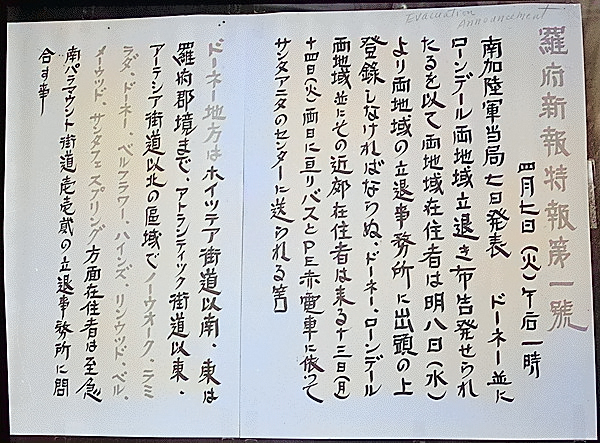 Evacuation
Announcement
羅府新報特報第一號
四月七日(火)午后一時
南加陸軍当局七日発表 ドーネー並に
ローンデール両地域立退き布告発せられ
たるを以て両地域在住者は明八日(水)
より両地域の立退事務所に出頭の上
登録しなければならぬ、ドーネー、ローンデール
両地域並にその近郊在住者は来る十三日(月)
十四日(火)両日に亘りバスとPE赤電車に依って
サンタアニタのセンターに送られる筈
ドーネー地方はホイッテア街道以南、東は
羅府郡境まで、アトランティック街道以東、
アーテシア街道以北の區域でノーウオーク、ラミ
ラダ、ドーネー、ベルフラワー、ハインズ、リンウッド、ベル、
メーウッド、サンタフェスプリング方面在住者は至急
南パラマウント街道壱壱貳の立退事務所に問
合す事